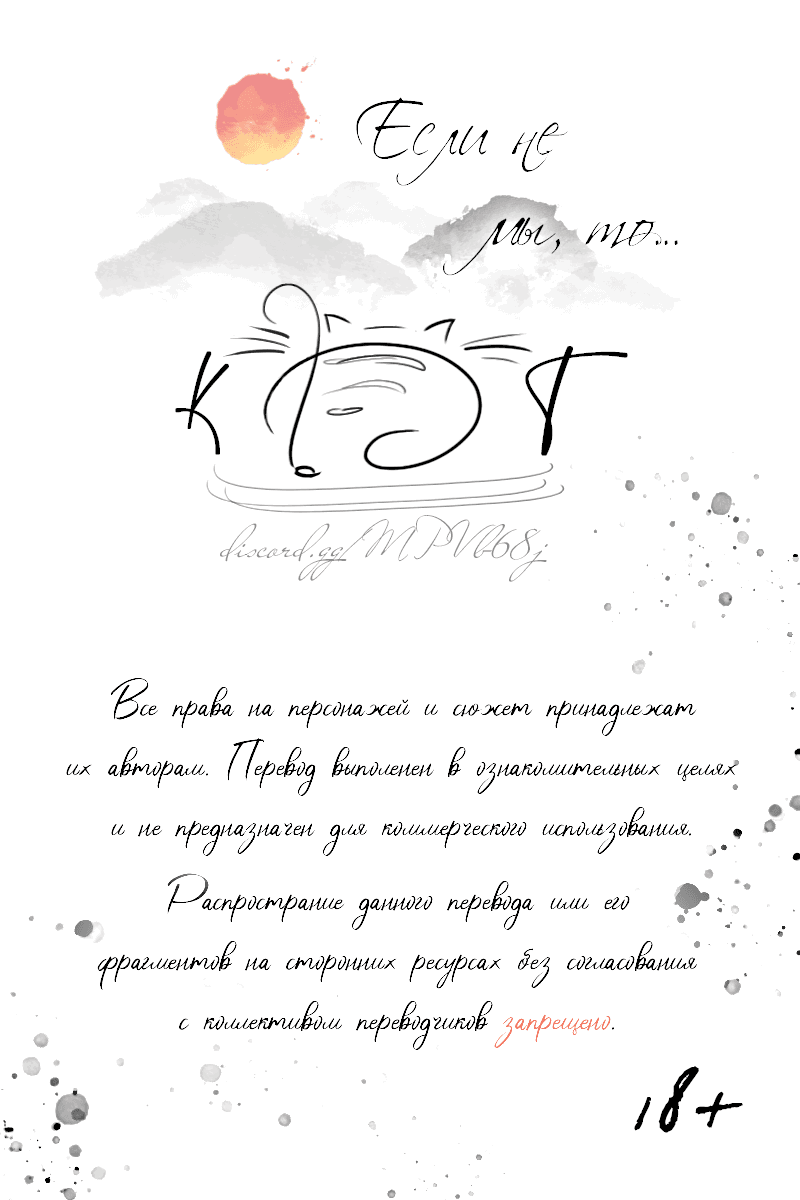 Если не
мы, то...
КОТ
discord.gg/MPVb68j
Все права на персонажей и сюжет принадлежат
их авторам. Перевод выполенен в ознакомительных целях
и не предназначен для коммерческого использования.
Распространие данного перевода или его
фрагментов на сторонних ресурсах без согласования
с коллективом переводчиков запрещено.
18+